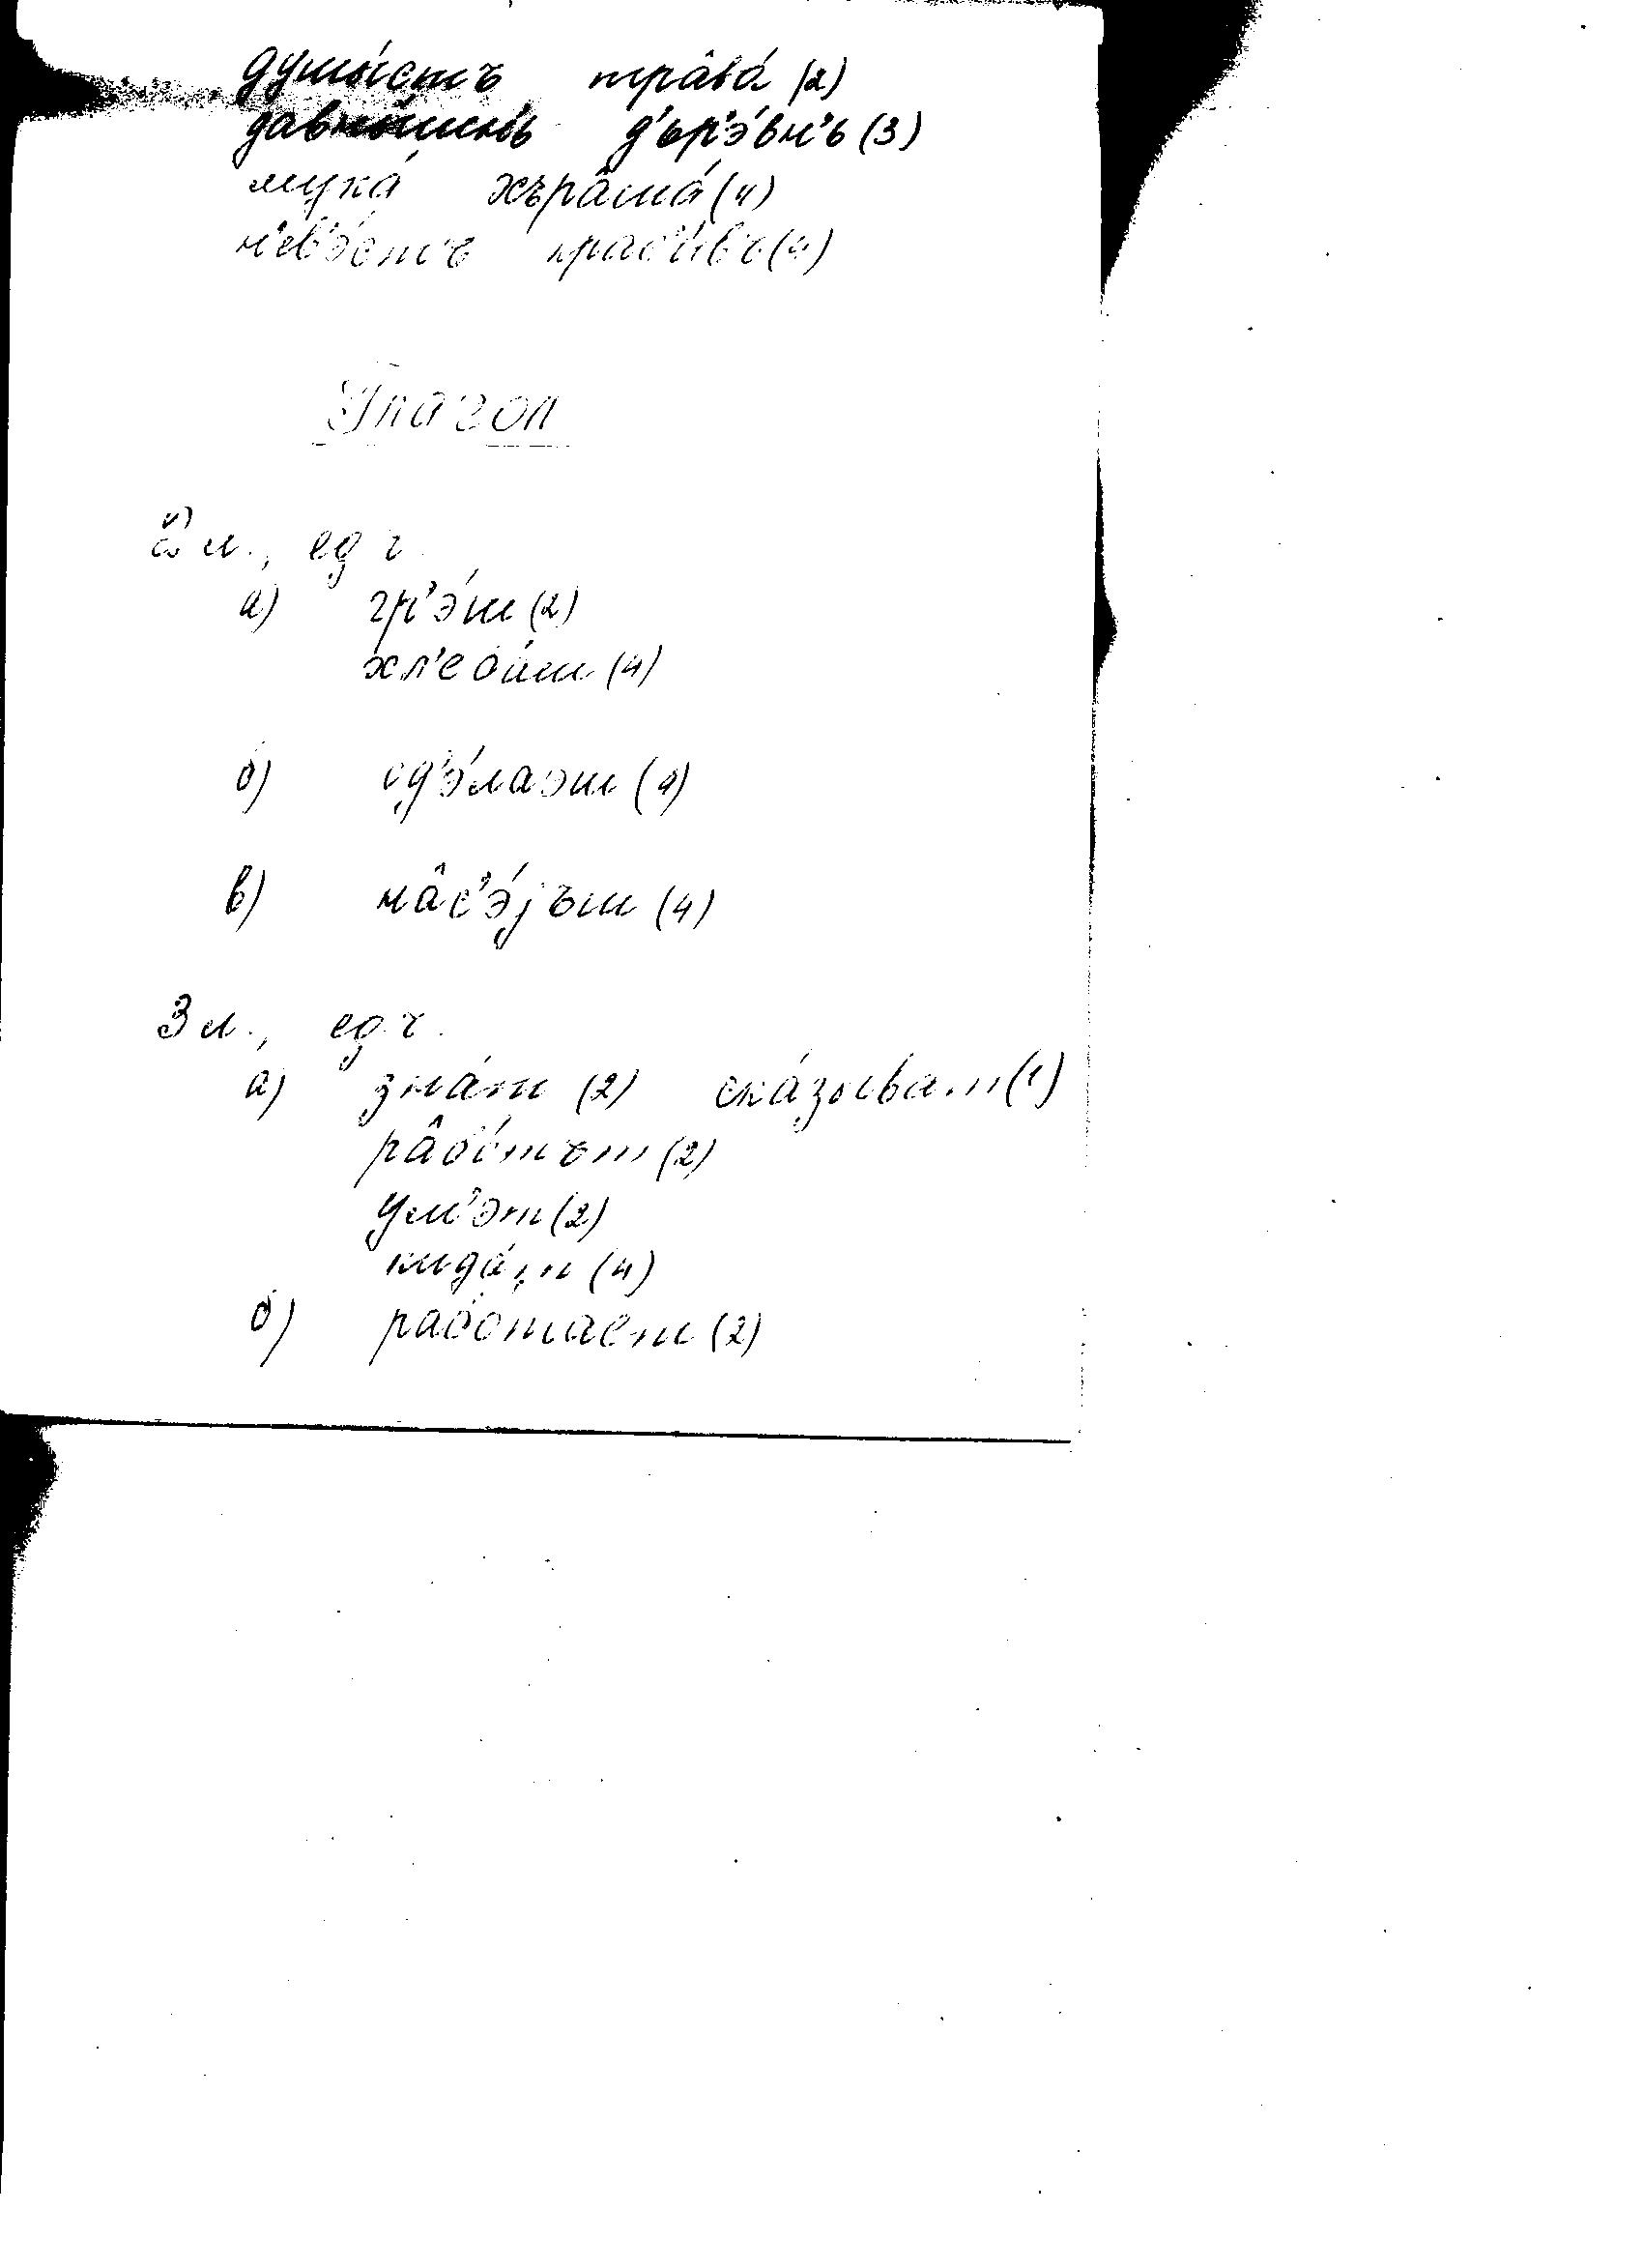 душы́стъ трâва́ (2)
давны́шн'ь д'ьр'э́вн'ь (3)
мука́ хърâша́ (4)
н'ев'э́стъ крас'и́въ (4)
Глагол
2 л., ед ч.
а) гр'э́ш (2)
хл'еба́ш (4)
б) сд'э́лаэш (4)
в) нâс'э́jъш (4)
3 л., ед. ч.
а) зна́т (2) ска́зыват (1)
рâбо́тът (2)
ум'эт (2)
кида́т (4)
б) работает (2)